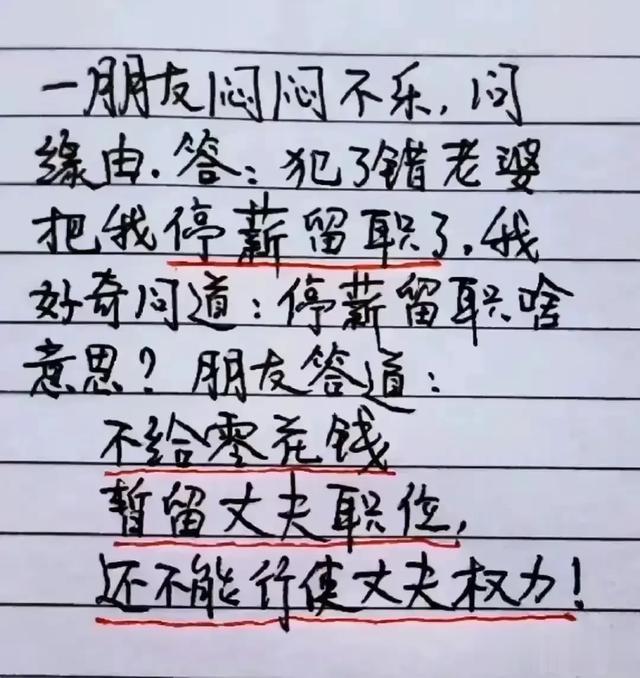 一朋友闷闷不乐,问
缘由.答:犯了错老婆
把我停薪留职了,我
好奇问道:停薪留职啥
意思?朋友答道:
不给零花钱
暂留丈夫职位,
还不能行使丈夫权力!